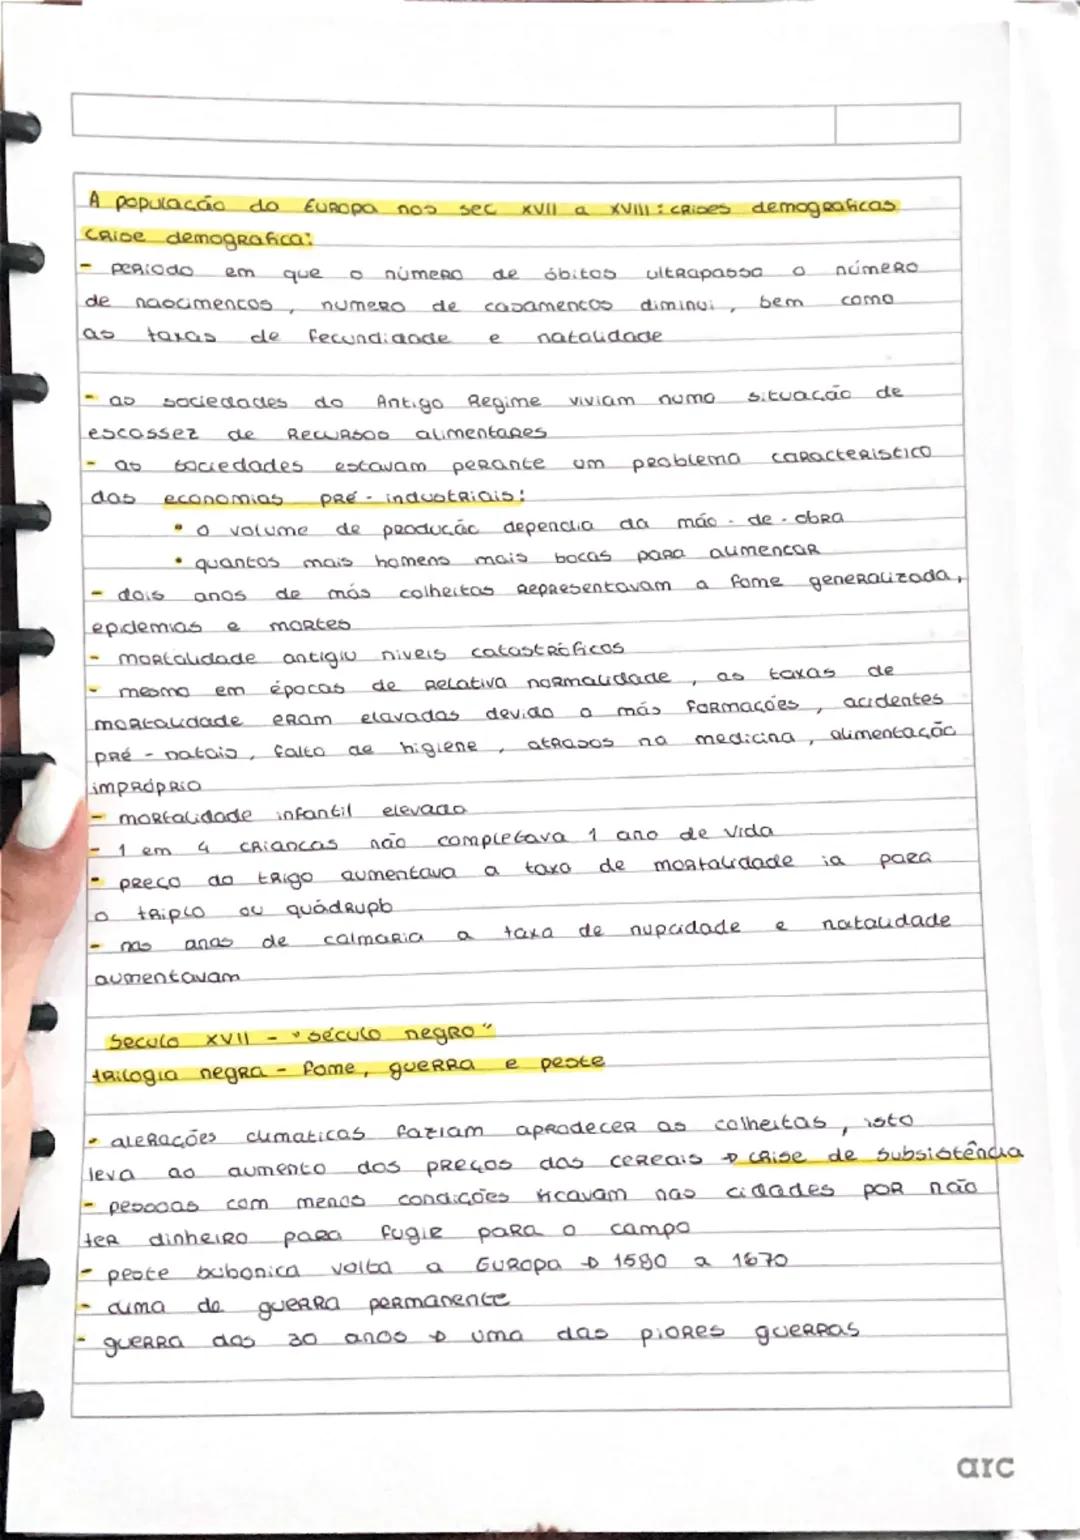 A população do Europa nos sec XVII a XVIII : crises demograficas
Crise demografica:
- periodo em que o número de óbitos ultrapassa o número
de nascimentos, numero de casamentos diminui, bem como
as taxas de fecundidade e natalidade
- as sociedades do Antigo Regime viviam numa situação de
escassez de recursos alimentares
- as sociedades estavam perante um problema caracteristico
das economias pré - industriais:
• o volume de produção dependia da mão - de - obra
• quantos mais homens mais bocas para alimentar
- dois anos de más colheitas representavam a fome generalizada,
epidemias e mortes
- mortalidade antigiu niveis catastróficos
- mesmo em épocas de relativa normalidade, as taxas de
mortalidade eram elavadas devido a más formações, acidentes
pré - natais, falta de higiene, atrasos na medicina, alimentação
imprópria
- mortalidade infantil elevada
- 1 em 4 criancas não completava 1 ano de vida
- preço do trigo aumentava a taxa de mortalidade ia para
o triplo ou quádruplo
- nos anos de calmaria a taxa de nupcidade e natalidade
aumentavam
Seculo XVII - "século negro"
trilogia negra - fome, guerra e peste
- alerações climaticas faziam aprodecer as colheitas, isto
leva ao aumento dos preços dos cereais → crise de subsistência
- pessoas com menos condições ficavam nas cidades por não
ter dinheiro para fugir para o campo
- peste bubonica volta a Europa → 1580 a 1670
- clima de guerra permanente
- guerra dos 30 anos → uma das piores guerras
arc